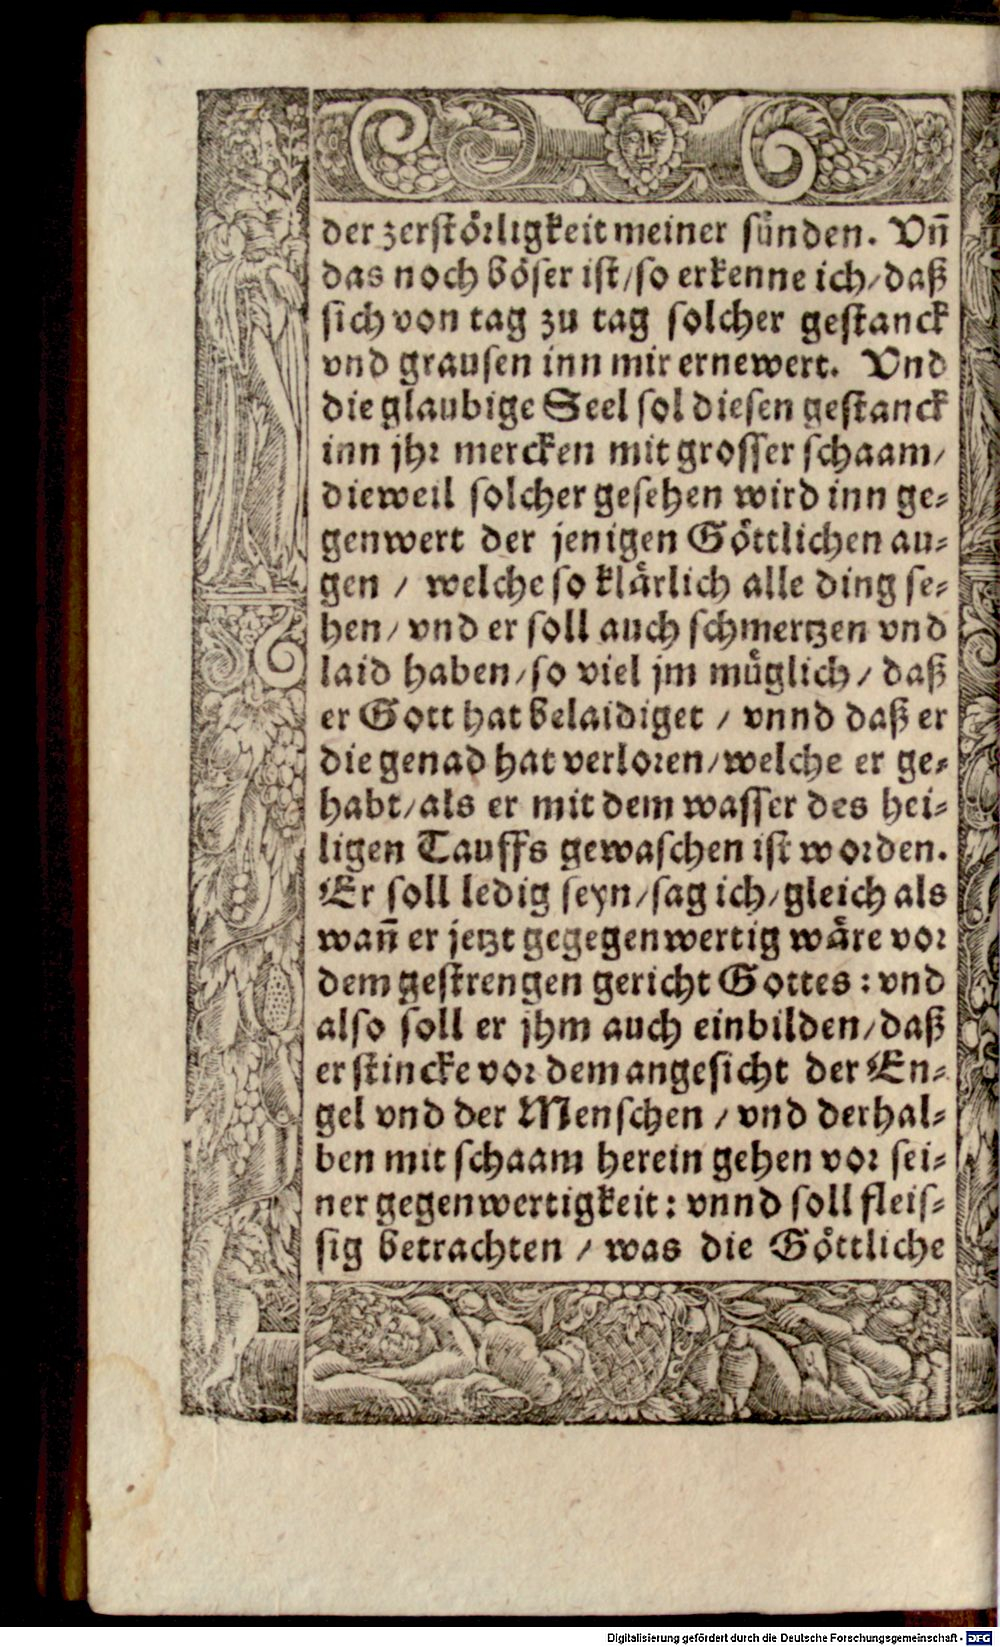 der zerstörligkeit meiner sünden. Vñ
das noch böser ist/so erkenne ich/daß
sich von tag zu tag solcher gestanck
vnd grausen inn mir ernewert. Vnd
die glaubige Seel sol diesen gestanck
inn jhr mercken mit grosser schaam/
dieweil solcher gesehen wird inn ge-
genwert der jenigen Göttlichen au-
gen / welche so klärlich alle ding se-
hen/ vnd er soll auch schmertzen vnd
laid haben/so viel jm müglich/ daß
er Gott hat belaidiget / vnnd daß er
die genad hat verloren/welche er ge-
habt/als er mit dem wasser des hei-
ligen Tauffs gewaschen ist worden.
Er soll ledig seyn/sag ich/gleich als
wañ er jetzt gegegenwertig wäre vor
dem gestrengen gericht Gottes: vnd
also soll er jhm auch einbilden/daß
er stincke vor dem angesicht der En-
gel vnd der Menschen / vnd derhal-
ben mit schaam herein gehen vor sei-
ner gegenwertigkeit: vnnd soll fleis-
sig betrachten / was die Göttliche
Digitalisierung gefördert durch die Deutsche Forschungsgemeinschaft - DFG